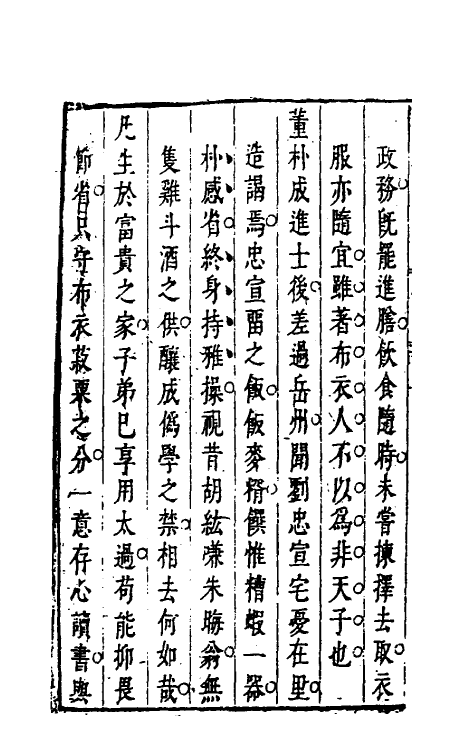 政務既罷進膳飲食隨時未嘗揀擇去取衣
服亦隨宜雖著布衣人不以爲非天子也
董朴成進士後差過岳州聞劉忠宣宅憂在里
造謁焉忠宣留之飯飯麥糈饌惟糟蝦一器
朴感省終身持雅操視昔胡紘嗛朱晦翁無
隻雞斗酒之供釀成僞學之禁相去何如哉
凡生於富貴之家子弟已享用太過苟能抑畏
節省只守布衣菽粟之分一意存心讀書與